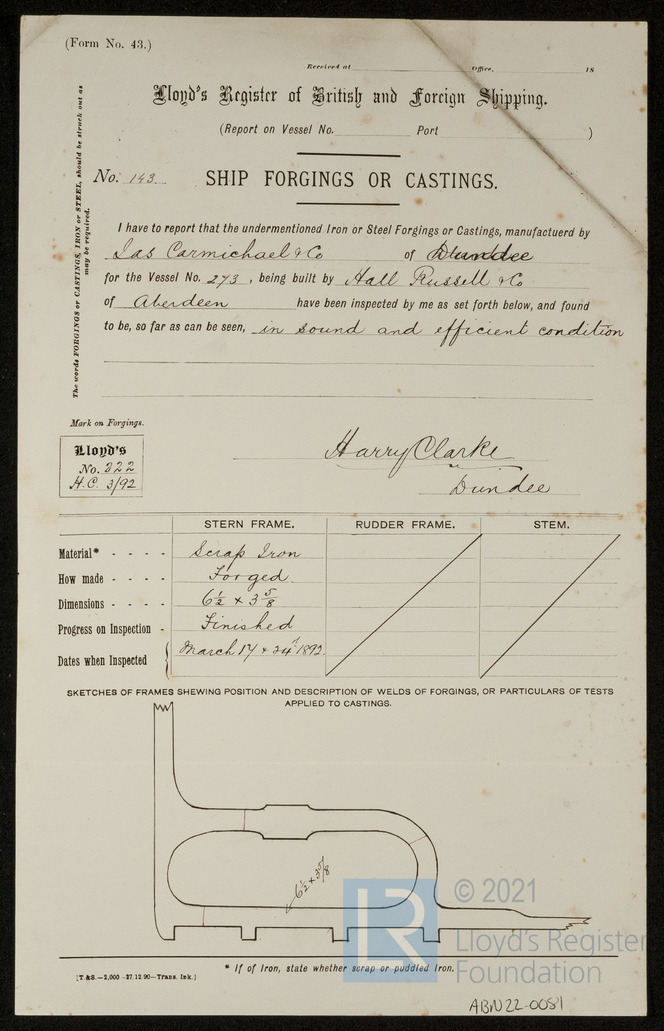 (Form No. 43.)
Received at Office, 18
Lloyd's Register of British and Foreign Shipping.
(Report on Vessel No. Port )
The words FORGINGS or CASTINGS, IRON or STEEL, should be struck out as may be required.
No. 143. SHIP FORGINGS OR CASTINGS.
I have to report that the undermentioned Iron or Steel Forgings or Castings, manufactuerd by
Jas Carmichael & Co of Dundee
for the Vessel No. 273, being built by Hall Russell & Co
of Aberdeen have been inspected by me as set forth below, and found
to be, so far as can be seen, in sound and efficient condition
Mark on Forgings.
Lloyd's
No. 322
H.C. 3/92
Harry Clarke
Dundee
STERN FRAME. RUDDER FRAME. STEM.
Material* - - - - Scrap Iron
How made - - - - Forged
Dimensions - - - - 6½ × 3⅝
Progress on Inspection - Finished
Dates when Inspected { March 17 & 24th 1892.
SKETCHES OF FRAMES SHEWING POSITION AND DESCRIPTION OF WELDS OF FORGINGS, OR PARTICULARS OF TESTS
APPLIED TO CASTINGS.
6½ × 3⅝
© 2021
LR Lloyd's Register
Foundation
* If of Iron, state whether scrap or puddled Iron.
[T.&S.—2,000 -27.12.90—Trans. Ink.]
ABN22-0081